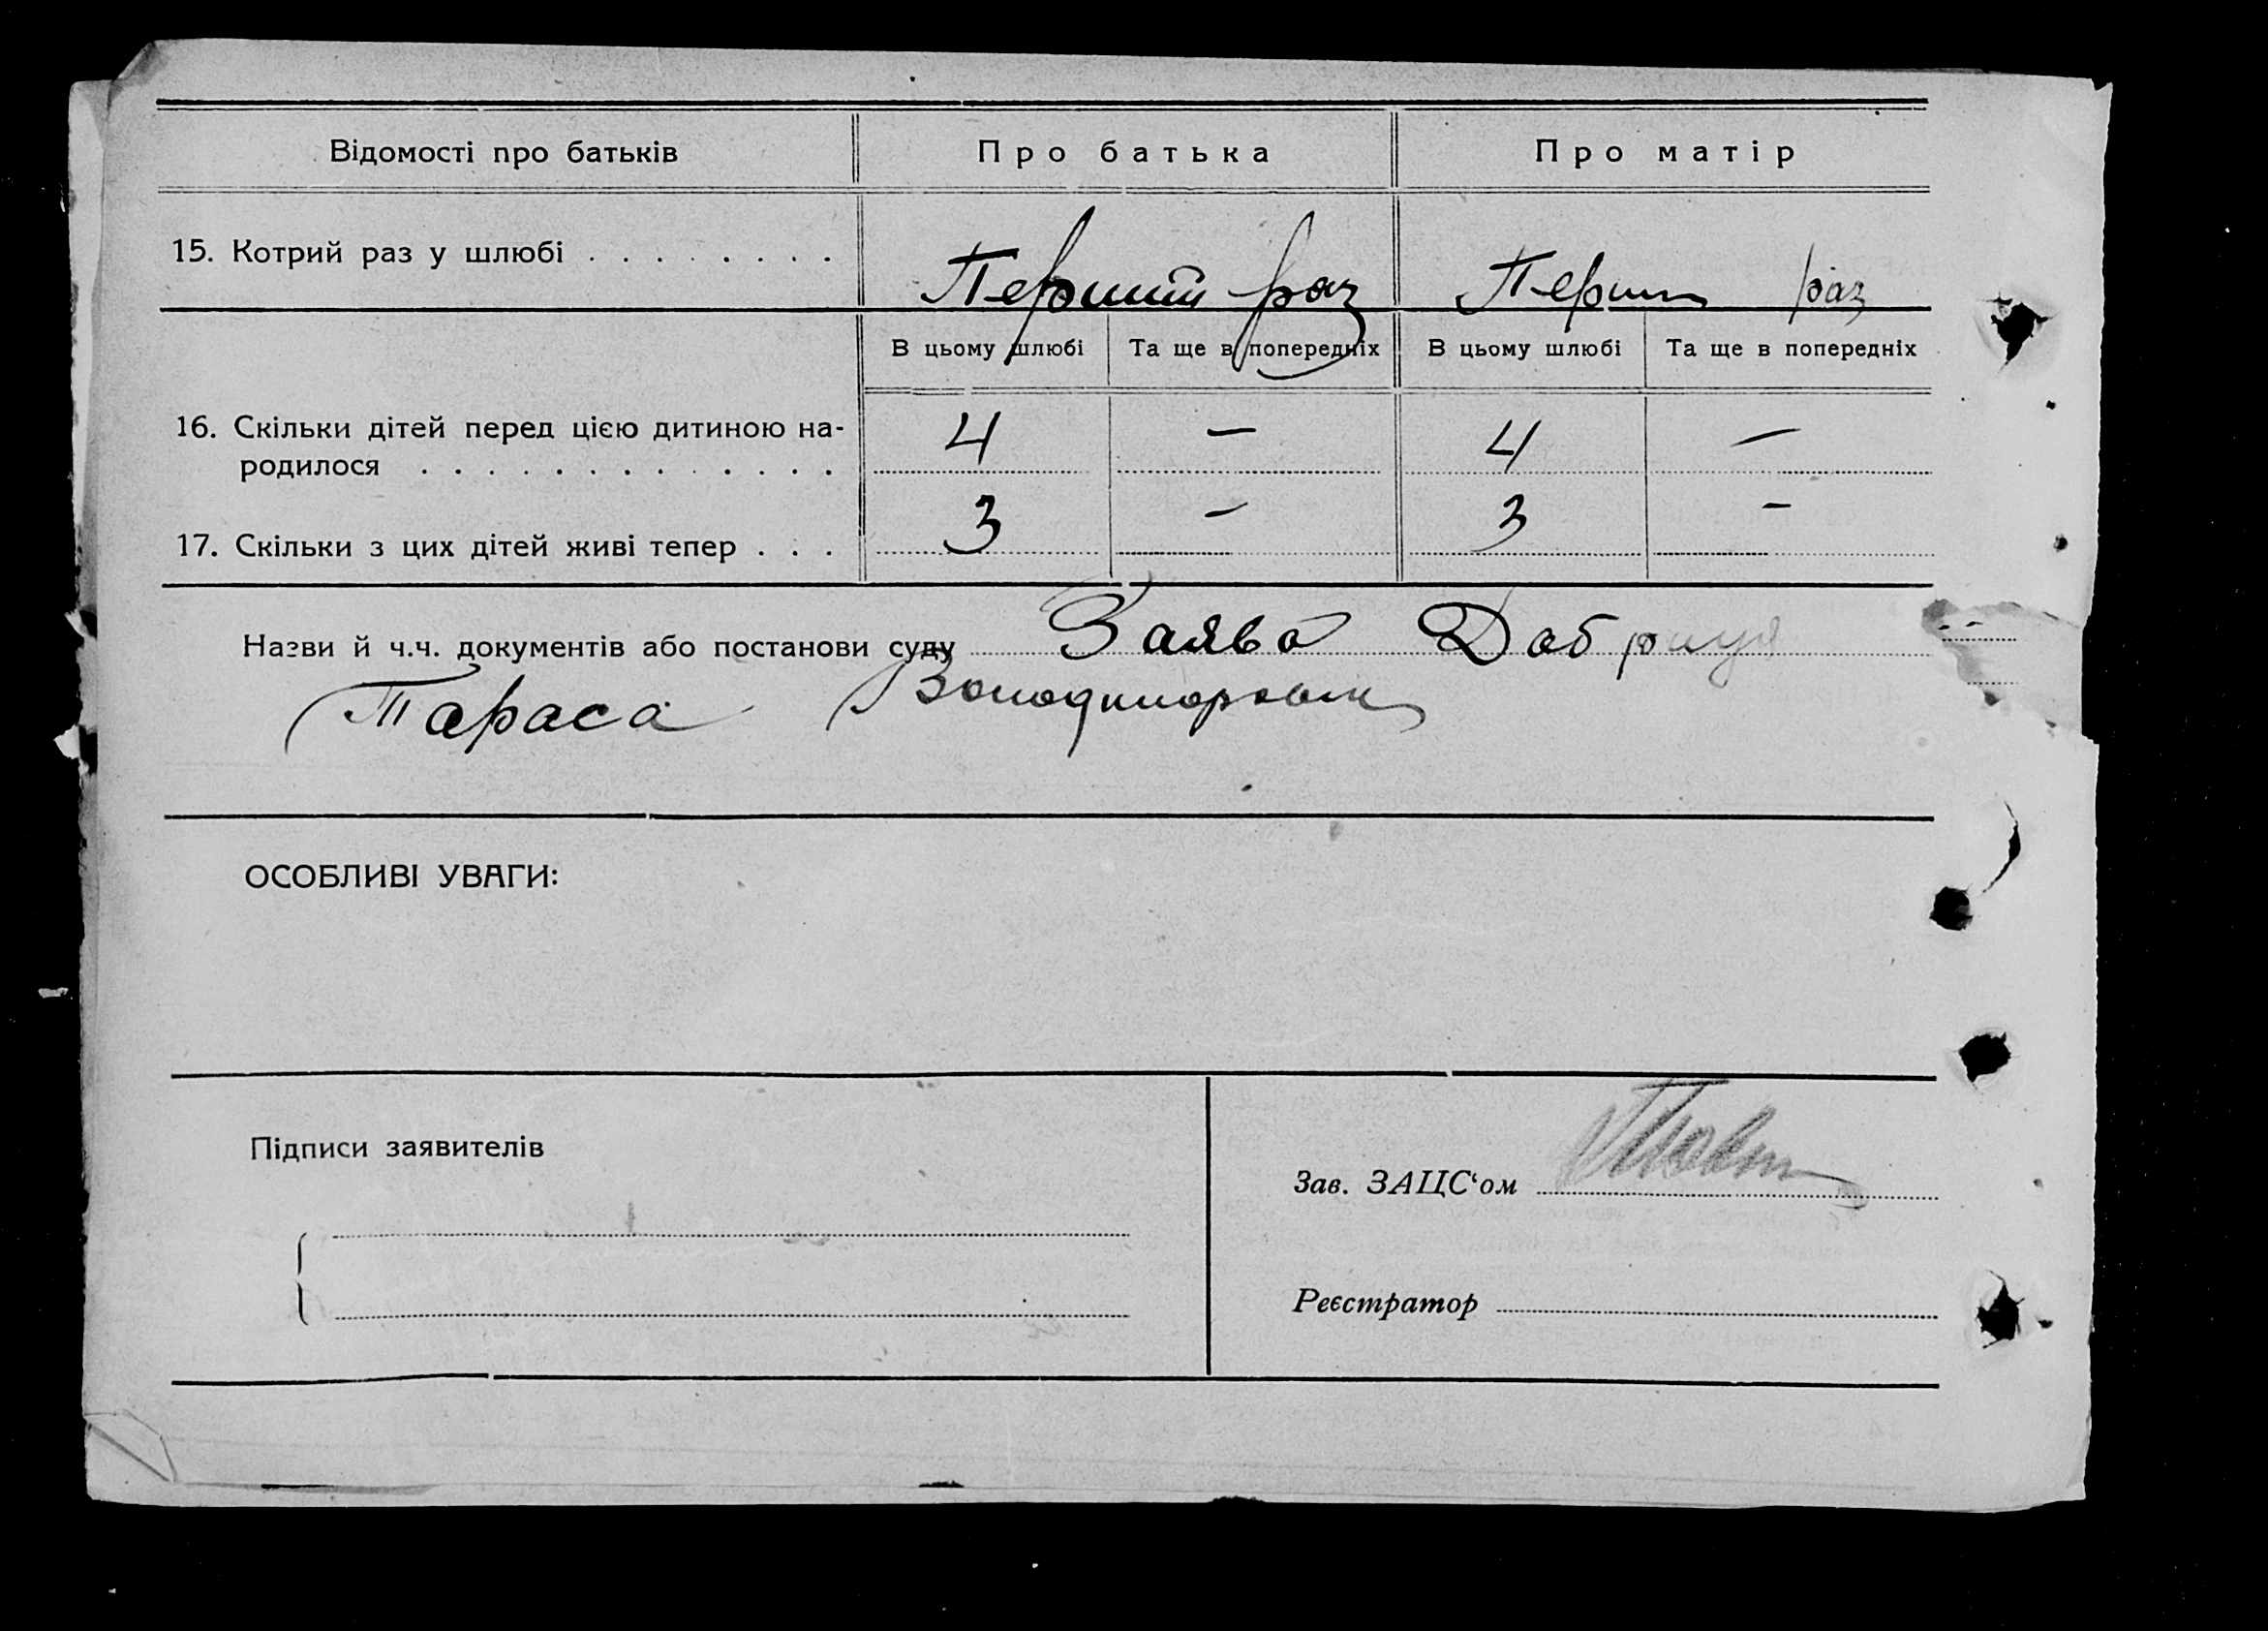 Відомості про батьків Про батька Про матір
15. Котрий раз у шлюбі . . . . . . . . Перший раз Перший раз
В цьому шлюбі Та ще в попередніх В цьому шлюбі Та ще в попередніх
16. Скільки дітей перед цією дитиною на-
родилося . . . . . . . . . . . . . 4 — 4 —
17. Скільки з цих дітей живі тепер . . . 3 — 3 —
Назви й ч.ч. документів або постанови суду Заява
Тараса Володимировича
ОСОБЛИВІ УВАГИ:
Підписи заявителів
Зав. ЗАЦС‘ом
Реєстратор